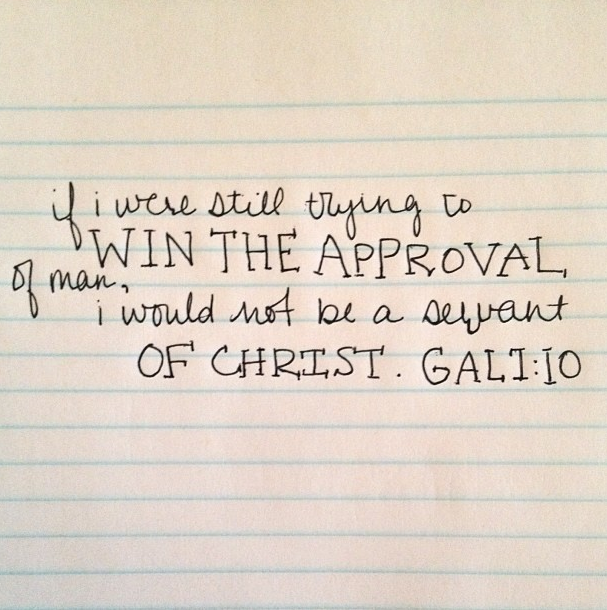 if i were still trying to
WIN THE APPROVAL
of man,
i would not be a servant
OF CHRIST. GAL 1:10